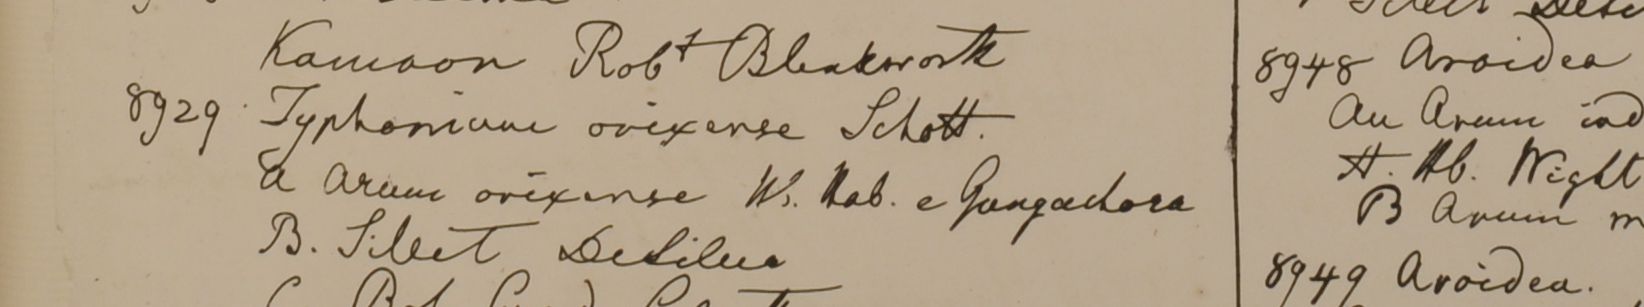 Kamaon Robt Blenkworth
8929 Typhonium orixense Schott.
a Arum orixense W. Hab. e Gongachora
B. Silet DeSilva
8948 Aroidea
An Arum ind
H. Hb. Wight
B Arum m
8949 Aroidea.